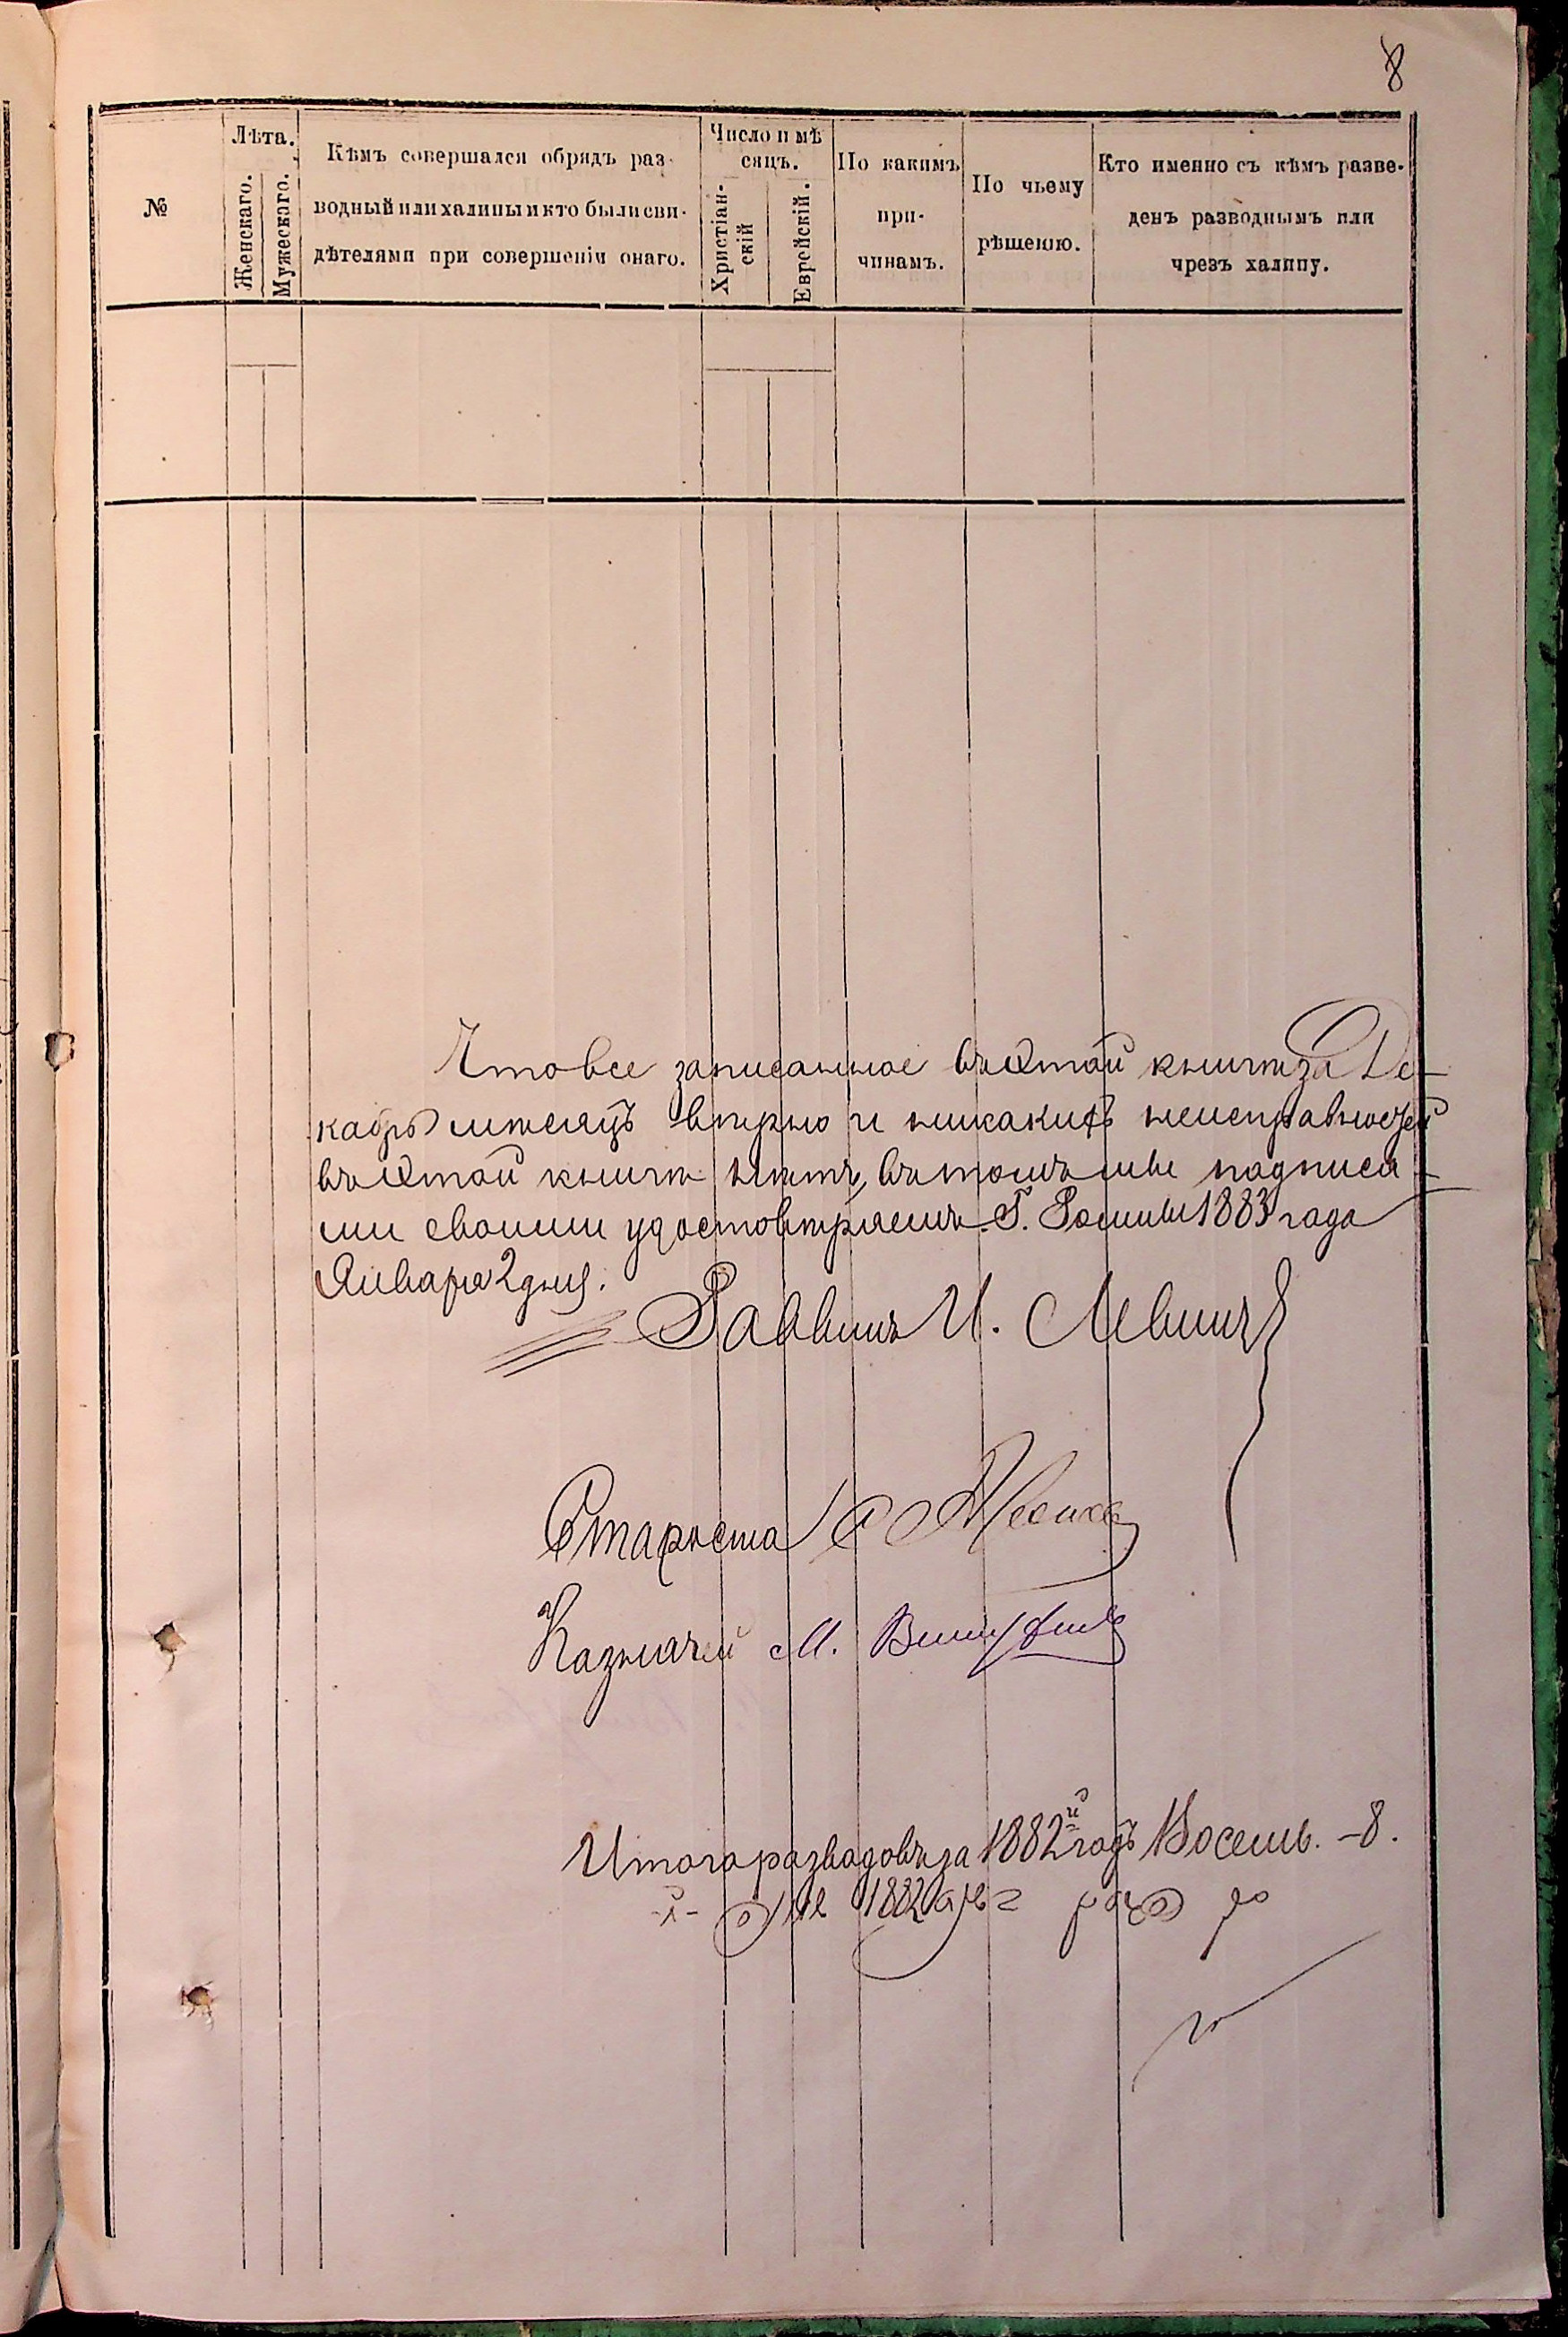 8
№
Лѣта.
Женскаго.
Мужескаго.
Кѣмъ совершался обрядъ раз-
водный или халицы и кто были сви-
дѣтелями при совершеніи онаго.
Число и мѣ
сяцъ.
Христіан-
скій
Еврейскій.
По какимъ
при-
чинамъ.
По чьему
рѣшенію.
Кто именно съ кѣмъ разве-
денъ разводнымъ или
чрезъ халицу.
Что все записанное въ этой книгѣ за Де-
кабрь мѣсяцъ вѣрно и никакихъ неисправностей
въ этой книгѣ нѣтъ, въ томъ мы подписа-
ми своими удостовѣряемъ. Г. Ромны 1883 года
Января 2 дня.
Раввинъ И. Левинъ
Староста
Казначей М.
Итого разводовъ за 1882й годъ Восемь. - 8.
1882